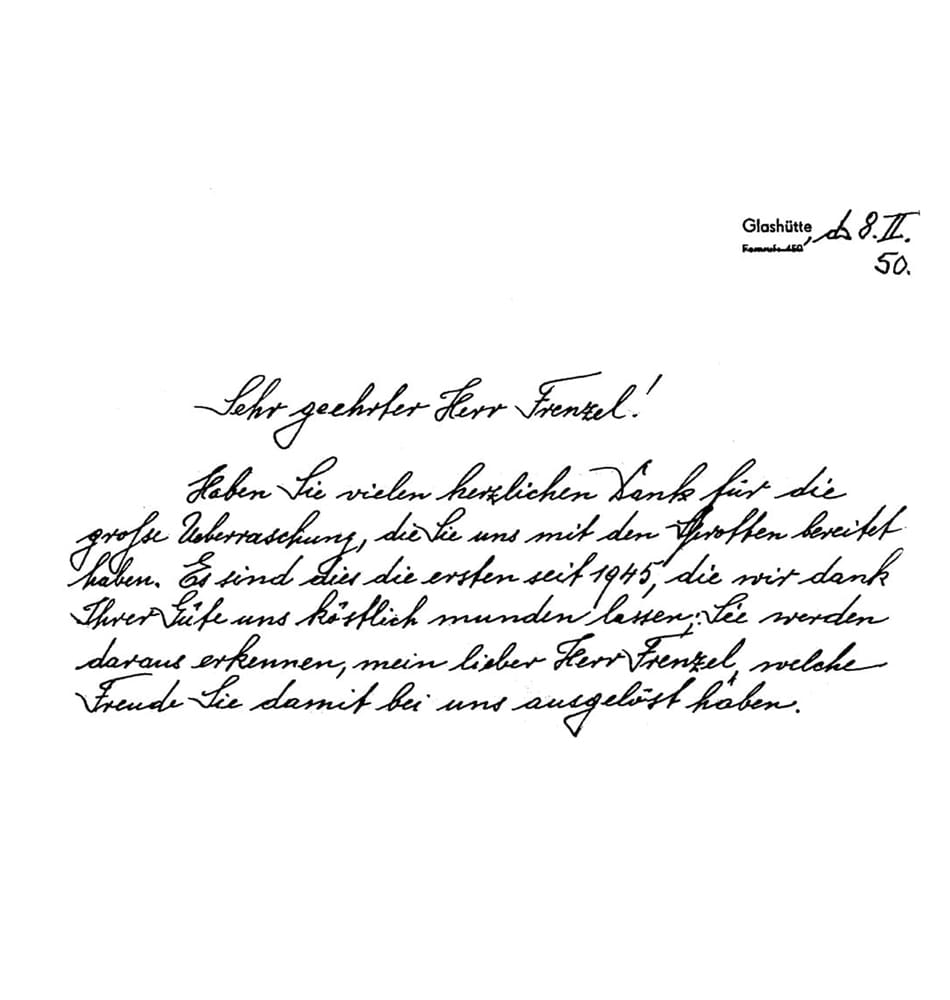 Glashütte, d. 8. II.
50.
Sehr geehrter Herr Frenzel!
Haben Sie vielen herzlichen Dank für die
große Ueberraschung, die Sie uns mit den Sprotten bereitet
haben. Es sind dies die ersten seit 1945, die wir dank
Ihrer Güte uns köstlich munden lassen; Sie werden
daraus erkennen, mein lieber Herr Frenzel, welche
Freude Sie damit bei uns ausgelöst haben.